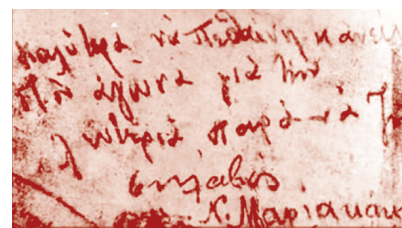 καλύτερα νὰ πεθαίνη κανεὶς
στὸν ἀγῶνα γιὰ τὴν
λευτεριὰ παρὰ νὰ ζῆ
σκλάβος
Ν. Μαριακάκη